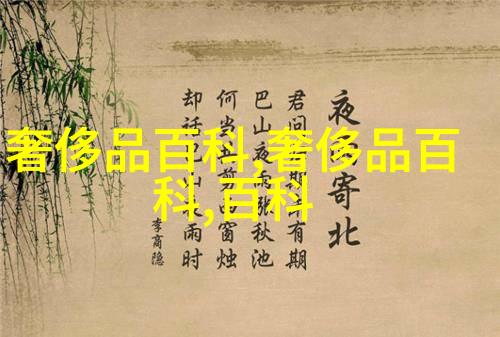 奢侈品百科,奢侈品百
科,百科
夜寄北
君问期未有期
巴山夜雨涨秋池
何当剪西窗烛
却话山雨时
李商隐